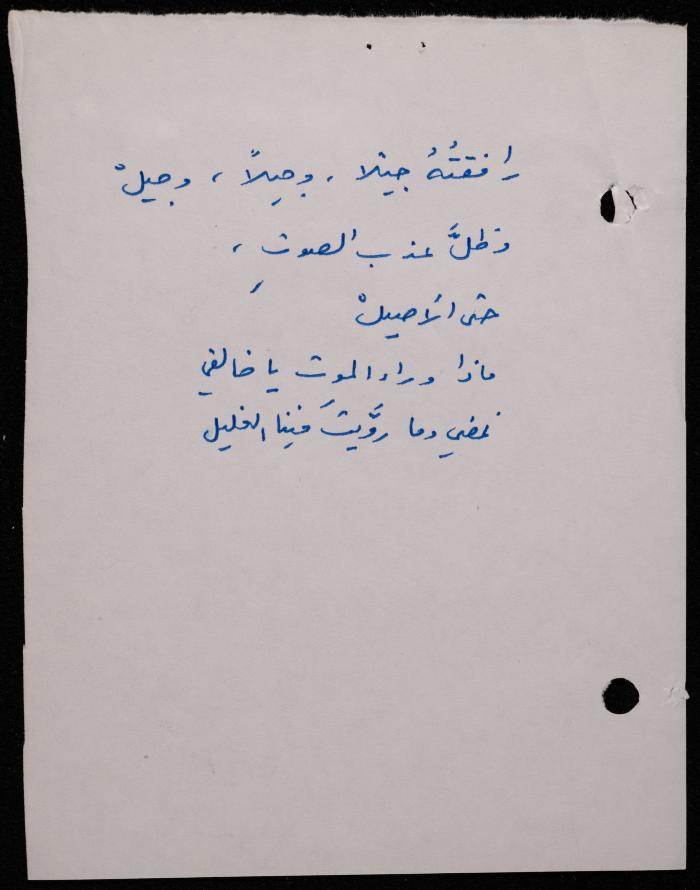 رافقتُهُ جيلا ، وجيلاً ، وجيلْ
وظلَّ عذب الصوتِ ،
حتى الأصيلْ
ماذا وراء الموت يا خالقي
نمضي وما روَّيتَ فينا الغليل